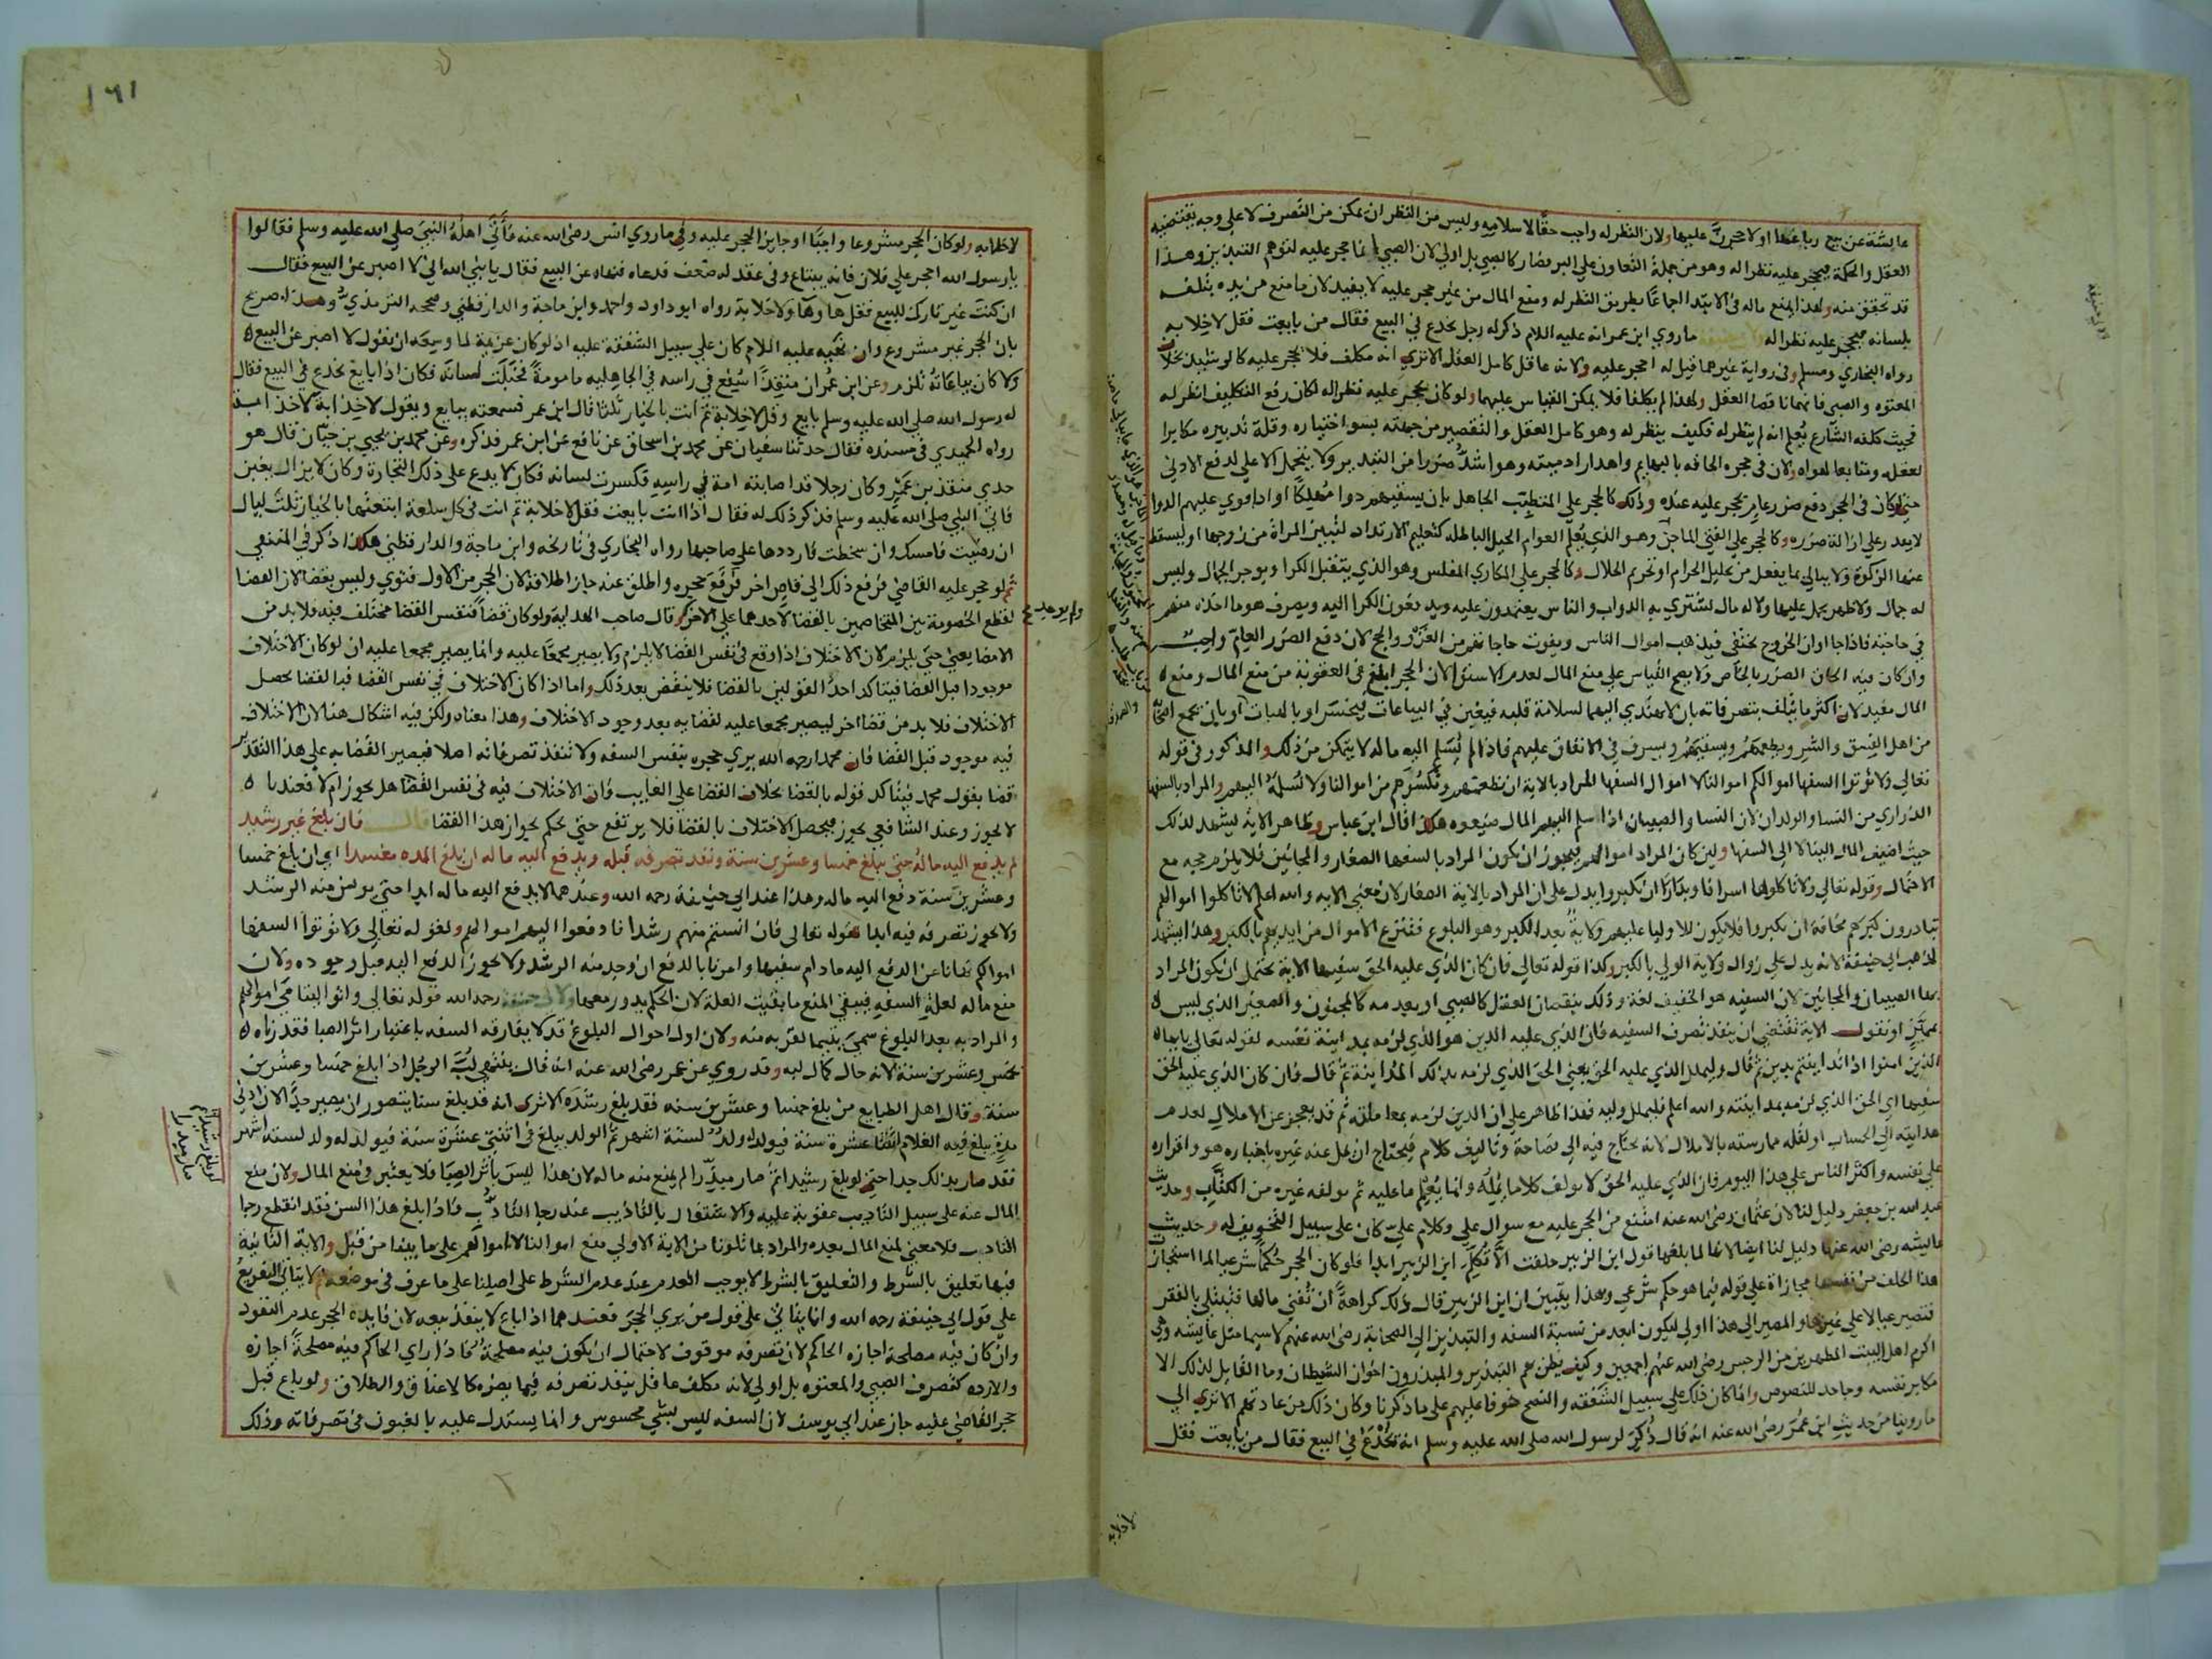 عايشة عن بيع رباعها او لاحجرن عليها ولان النظر له واجب حقا لاسلامه وليس من النظر ان يمكن من التصرف لا على وجه يقتضيه
العقل والحكمة فيحجر عليه نظرا له وهو من جملة التعاون على البر فصار كالصبي بل اولى لان الصبي انما حجر عليه لتوهم التبذير وهذا
قد تحقق منه ولهذا يمنع ماله في الابتدا اجماعا بطريق النظر له ومنع المال من غير حجر عليه لا يفيد لان ما منع من يده يتلف
بلسانه فيحجر عليه نظرا له ماروي ابن عمر انه عليه السلام ذكر له رجل يخدع في البيع فقال من بايعت فقل لا خلابه
رواه البخاري ومسلم وفي رواية غيرهما قيل له احجر عليه ولانه عاقل كامل العقل الا ترى انه مكلف فلا يحجر عليه كالرشيد بخلاف
المعتوه والصبي فانهما ناقصا العقل ولهذا لم يكلفا فلا يمكن القياس عليهما ولو كان يحجر عليه نظرا له لكان رفع التكليف انظر له
فحيث كلفه الشارع يعلم انه لم ينظر له فكيف ينظر له وهو كامل العقل والتقصير من جهته بسو اختياره وقلة تدبيره مكابرا
لعقله ومتابعا لهواه ولان في حجره الحاقه بالبهايم واهدار ادميته وهو اشد ضررا من التبذير ولا يتحمل الاعلى لدفع الادنى
حتى لو كان في الحجر دفع ضرر عام يحجر عليه عنده وذلك كالحجر على المتطبب الجاهل بان يسقيهم دوا مهلكا او اذا قوي عليهم الدوا
لا يقدر على ازالة ضرره وكالحجر على المفتي الماجن وهو الذي يعلم العوام الحيل الباطلة كتعليم الارتداد لتبين المراة من زوجها او ليسقط
عنها الزكوة ولا يبالي بما يفعل من تحليل الحرام او تحريم الحلال وكالحجر على المكاري المفلس وهو الذي يتقبل الكرا ويوجر الجمال وليس
له جمال ولا ظهر يحمل عليها ولا له مال لشتري به الدواب والناس يعتمدون عليه ويدفعون الكرا اليه ويصرف هو ما اخذه منهم
في حاجته فاذا جا اوان الخروج يختفي فيذهب اموال الناس ويفوت حاجاتهم من الغزو والحج لان دفع الضرر العام واجب
وان كان فيه الحاق الضرر بالخاص ولا يصح القياس على منع المال لعدم الاستوا لان الحجر ابلغ في العقوبة من منع المال ومنع
المال مفيد لان اكثر ما يتلف بتصرفاته بان لا يهتدي اليها لسلامة قلبه فيغبن في البياعات فيخسر او بالهبات او بان يجمع اصحابه
من اهل الفسق والشر ويطعمهم ويسقيهم ويسرف في الانفاق عليهم فاذا لم يسلم اليه ماله لا يتمكن من ذلك والمذكور في قوله
تعالى ولا تؤتوا السفها اموالكم اموالنا لا اموال السفها المراد بالاية ان نطعمهم ونكسوهم من اموالنا ولا نسلم اليهم والمراد بالسفها
الذراري من النسا والولدان لان النسا والصبيان اذا سلم اليهم المال ضيعوه هكذا قال ابن عباس وظاهر الاية يشهد لذلك
حيث اضيف المال الينا لا الى السفها ولين كان المراد اموالهم فيجوز ان يكون المراد بالسفها الصغار والمجانين فلا يلزم حجة مع
الاحتمال وقوله تعالى ولا تاكلوها اسرافا وبدارا ان يكبروا يدل على ان المراد بالاية الصغار لان معنى الاية والله اعلم لا تاكلوا اموالهم
تبادرون كبرهم مخافة ان يكبروا فلا يكون للاوليا عليهم ولاية بعد الكبر وهو البلوغ فتنزع الاموال من ايديهم بالكبر وهذا يشهد
لمذهب ابي حنيفة لانه يدل على زوال ولاية الولي بالكبر وكذا قوله تعالى فان كان الذي عليه الحق سفيها الاية يحتمل ان يكون المراد
بها الصبيان والمجانين لان السفيه هو الخفيف لغة وذلك بنقصان العقل كالصبي او بعدمه كالمجنون والصغير الذي ليس
بمميز او نقول الاية تقتضي ان ينفذ تصرف السفيه فان الذي عليه الدين هو الذي لزمه بمداينة نفسه لقوله تعالى يا ايها
الذين امنوا اذا تداينتم بدين ثم قال وليملل الذي عليه الحق يعني الحق الذي لزمه بذلك المداينة ثم قال فان كان الذي عليه الحق
سفيها اي الحق الذي لزمه بمداينته والله اعلم فليملل وليه فهذا ظاهر على ان الدين لزمه بمعاملته ثم قد يعجز عن الاملال لعدم
هدايته الى الحساب او لقلة ممارسته بالاملال لانه يحتاج فيه الى فصاحة وتاليف كلام فيحتاج ان يمل عنه غيره باخباره هو واقراره
على نفسه واكثر الناس على هذا اليوم فان الذي عليه الحق لا يولف كلاما يمله وانما يعلم ما عليه ثم يولفه غيره من الكتاب وحديث
عبد الله بن جعفر دليل لنا لان عثمان رضى الله عنه امتنع من الحجر عليه مع سوال علي وكلام علي كان على سبيل التخويف له وحديث
عايشه رضى الله عنها دليل لنا ايضا لانها لما بلغها قول ابن الزبير حلفت الا تكلم ابن الزبير ابدا فلو كان الحجر حكما شرعيا لما استجازت
هذا الحلف من نفسها مجازاة على قوله فيما هو حكم شرعي وبهذا يتبين ان ابن الزبير قال ذلك كراهة ان تفنى مالها فتبتلى بالفقر
فتصير عيالا على غيرها والمصير الى هذا اولى ليكون ابعد من نسبة السفه والتبذير الى الصحابة رضى الله عنهم لاسيما مثل عايشه وهي
اكرم اهل البيت المطهرين من الرجس رضى الله عنهم اجمعين وكيف يظن بهم التبذير والمبذرون اخوان الشيطان وما القايل لذلك الا
مكابر نفسه وجاحد للنصوص وانما كان ذلك على سبيل الشفقة والنصح خوفا عليهم على ما ذكرنا وكان ذلك من عادتهم الا ترى الى
ما روينا من حديث ابن عمر رضى الله عنه انه قال ذكر لرسول الله صلى الله عليه وسلم انه يخدع في البيع فقال من بايعت فقل
لا خلابه
١٦١
لا خلابه ولو كان الحجر مشروعا واجبا او جايزا لحجر عليه وفي ماروي انس رضى الله عنه فاتى اهله النبي صلى الله عليه وسلم فقالوا
يا رسول الله احجر على فلان فانه يبتاع وفي عقله ضعف فدعاه فنهاه عن البيع فقال يا نبي الله اني لا اصبر عن البيع فقال
ان كنت غير تارك للبيع فقل ها وها ولا خلابة رواه ابو داود واحمد وابن ماجة والدارقطني وصححه الترمذي وهذا صريح
بان الحجر غير مشروع وان نهيه عليه السلام كان على سبيل الشفقة عليه اذ لو كان عزيمة لما وسعه ان يقول لا اصبر عن البيع
ولا كان بياعاته تلزم وعن ابن عمر ان منقذا سفع في راسه في الجاهليه مامومة فخبلت لسانه فكان اذا بايع يخدع في البيع فقال
له رسول الله صلى الله عليه وسلم بايع وقل لا خلابة ثم انت بالخيار ثلثا قال ابن عمر فسمعته يبايع ويقول لا خذابة لا خذابة
رواه الحميدي في مسنده فقال حدثنا سفيان عن محمد بن اسحاق عن نافع عن ابن عمر فذكره وعن محمد بن يحيى بن حبان قال هو
جدي منقذ بن عمير وكان رجلا قد اصابته امة في راسه فكسرت لسانه فكان لا يدع على ذلك التجارة وكان لا يزال يغبن
فاتى النبي صلى الله عليه وسلم فذكر ذلك له فقال اذا انت بايعت فقل لا خلابة ثم انت في كل سلعة ابتعتها بالخيار ثلث ليال
ان رضيت فامسك وان سخطت فارددها على صاحبها رواه البخاري في تاريخه وابن ماجة والدارقطني هكذا ذكر في المنتقى
ثم لو حجر عليه القاضي فرفع ذلك الى قاض اخر فرفع حجره واطلق عنه جاز اطلاقه لان الحجر من الاول فتوى وليس بقضا لان القضا
لقطع الخصومة بين المتخاصمين بالقضا لاحدهما على الاخر قال صاحب الهداية ولو كان قضا فنفس القضا مختلف فيه فلا بد من
ولم يوجد
الامضا يعني حتى يلزم لان الاختلاف اذا وقع في نفس القضا لا يلزم ولا يصير مجمعا عليه وانما يصير مجمعا عليه ان لو كان الاختلاف
موجودا قبل القضا فيتاكد احد القولين بالقضا فلا ينقض بعد ذلك واما اذا كان الاختلاف في نفس القضا فبالقضا يحصل
الاختلاف فلا بد من قضا اخر ليصير مجمعا عليه لقضايه بعد وجود الاختلاف وهذا معناه ولكن فيه اشكال هنا لان الاختلاف
فيه موجود قبل القضا فان محمدا رحمه الله يرى حجره بنفس السفه ولا تنفذ تصرفاته اصلا فيصير القضا به على هذا التقدير
قضا بقول محمد فيتاكد قوله بالقضا بخلاف القضا على الغايب فان الاختلاف فيه في نفس القضا هل يجوز ام لا فعندنا
لا يجوز وعند الشافعي يجوز فيحصل الاختلاف بالقضا فلا يرتفع حتى يحكم بجواز هذا القضا قال فان بلغ غير رشيد
لم يدفع اليه ماله حتى يبلغ خمسا وعشرين سنة ونفذ تصرفه قبله ويدفع اليه ماله ان بلغ المدة مفسدا اي ان بلغ خمسا
وعشرين سنة دفع اليه ماله وهذا عند ابي حنيفة رحمه الله وعندهما لا يدفع اليه ماله ابدا حتى يونس منه الرشد
ولا يجوز تصرفه فيه ابدا لقوله تعالى فان انستم منهم رشدا فادفعوا اليهم اموالهم ولقوله تعالى ولا تؤتوا السفها
اموالكم نهانا عن الدفع اليه ما دام سفيها وامرنا بالدفع ان وجد منه الرشد ولا يجوز الدفع اليه قبل وجوده ولان
منع ماله لعلة السفه فيبقى المنع ما بقيت العلة لان الحكم يدور معها ولابي حنيفة رحمه الله قوله تعالى واتوا اليتامى اموالهم
والمراد به بعد البلوغ سمي يتيما لقربه منه ولان اول احوال البلوغ قد لا يفارقه السفه باعتبار اثر الصبا فقدرناه
بخمس وعشرين سنة لانه حال كمال لبه وقد روي عن عمر رضى الله عنه انه قال ينتهي لب الرجل اذا بلغ خمسا وعشرين
سنة وقال اهل الطبايع من بلغ خمسا وعشرين سنه فقد بلغ رشده الا ترى انه قد بلغ سنا يتصور ان يصير جدا لان ادنى
مدة يبلغ فيه الغلام اثنتا عشرة سنة فيولد له ولد لستة اشهر ثم الولد يبلغ في اثنتى عشرة سنة فيولد له ولد لستة اشهر
فقد صار بذلك جدا حتى لو بلغ رشيدا ثم صار مبذرا لم يمنع منه ماله لان هذا ليس باثر الصبا فلا يعتبر في منع المال ولان منع
لو بلغ رشيدا ثم
صار مبذرا
المال عنه على سبيل التاديب عقوبة عليه والاشتغال بالتاديب عند رجا التادب فاذا بلغ هذا السن فقد انقطع رجا
التادب فلا معنى لمنع المال بعده والمراد بما تلونا من الاية الاولى منع اموالنا لا اموالهم على ما بينا من قبل والاية الثانية
فيها تعليق بالشرط والتعليق بالشرط لا يوجب العدم عند عدم الشرط على اصلنا على ما عرف في موضعه ثم لا يتاتى التفريع
على قول ابي حنيفة رحمه الله وانما يتاتى على قول من يرى الحجر فعندهما اذا باع لا ينفذ بيعه لان فايدة الحجر عدم النفوذ
وان كان فيه مصلحة اجازه الحاكم لان تصرفه موقوف لاحتمال ان يكون فيه مصلحة فاذا راى الحاكم فيه مصلحة اجازه
والا رده كتصرف الصبي والمعتوه بل اولى لانه مكلف عاقل ينفذ تصرفه فيما يضره كالاعتاق والطلاق ولو باع قبل
حجر القاضي عليه جاز عند ابي يوسف لان السفه ليس بشي محسوس وانما يستدل عليه بالغبون في تصرفاته وذلك